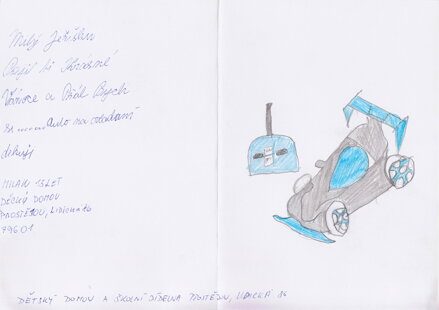 Milý Ježíšku
Přeji ti Krásné
Vánoce a Přál Bych
si ........ Auto na ovládaní
děkuji
MILAN 13 LET
DĚCKÝ DOMOV
PROSTĚJOV, LIDICKÁ
796 01
DĚTSKÝ DOMOV A ŠKOLNÍ JÍDELNA PROSTĚJOV, LIDICKÁ 86